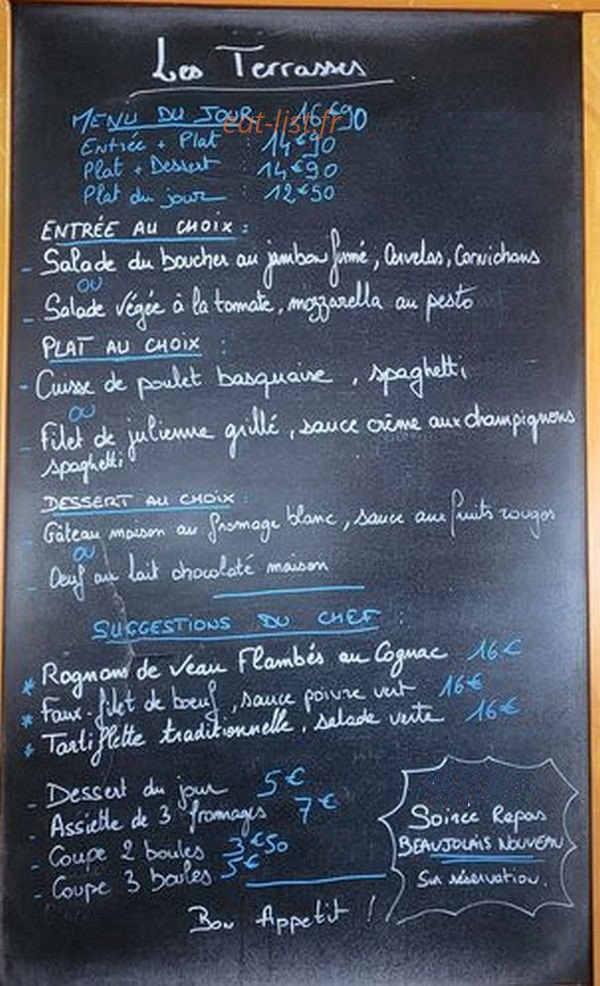 Les Terrasses
MENU DU JOUR 16€90
eat-list.fr
Entrée + Plat : 14€90
Plat + Dessert : 14€90
Plat du jour : 12€50
ENTRÉE AU CHOIX :
- Salade du boucher au jambon fumé, Cervelas, Cornichons
ou
- Salade Végée à la tomate, mozzarella au pesto
PLAT AU CHOIX :
- Cuisse de poulet basquaise, spaghetti
ou
- Filet de julienne grillé, sauce crème aux champignons
spaghetti
DESSERT AU CHOIX :
- Gâteau maison au fromage blanc, sauce aux fruits rouges
ou
- Oeuf au lait chocolaté maison
SUGGESTIONS DU CHEF :
* Rognons de Veau Flambés au Cognac 16€
* Faux-filet de bœuf, sauce poivre vert 16€
* Tartiflette traditionnelle, salade verte 16€
- Dessert du jour 5€
- Assiette de 3 fromages 7€
- Coupe 2 boules 3€50
- Coupe 3 boules 5€
Soirée Repas
BEAUJOLAIS NOUVEAU
Sur réservation.
Bon Appetit !